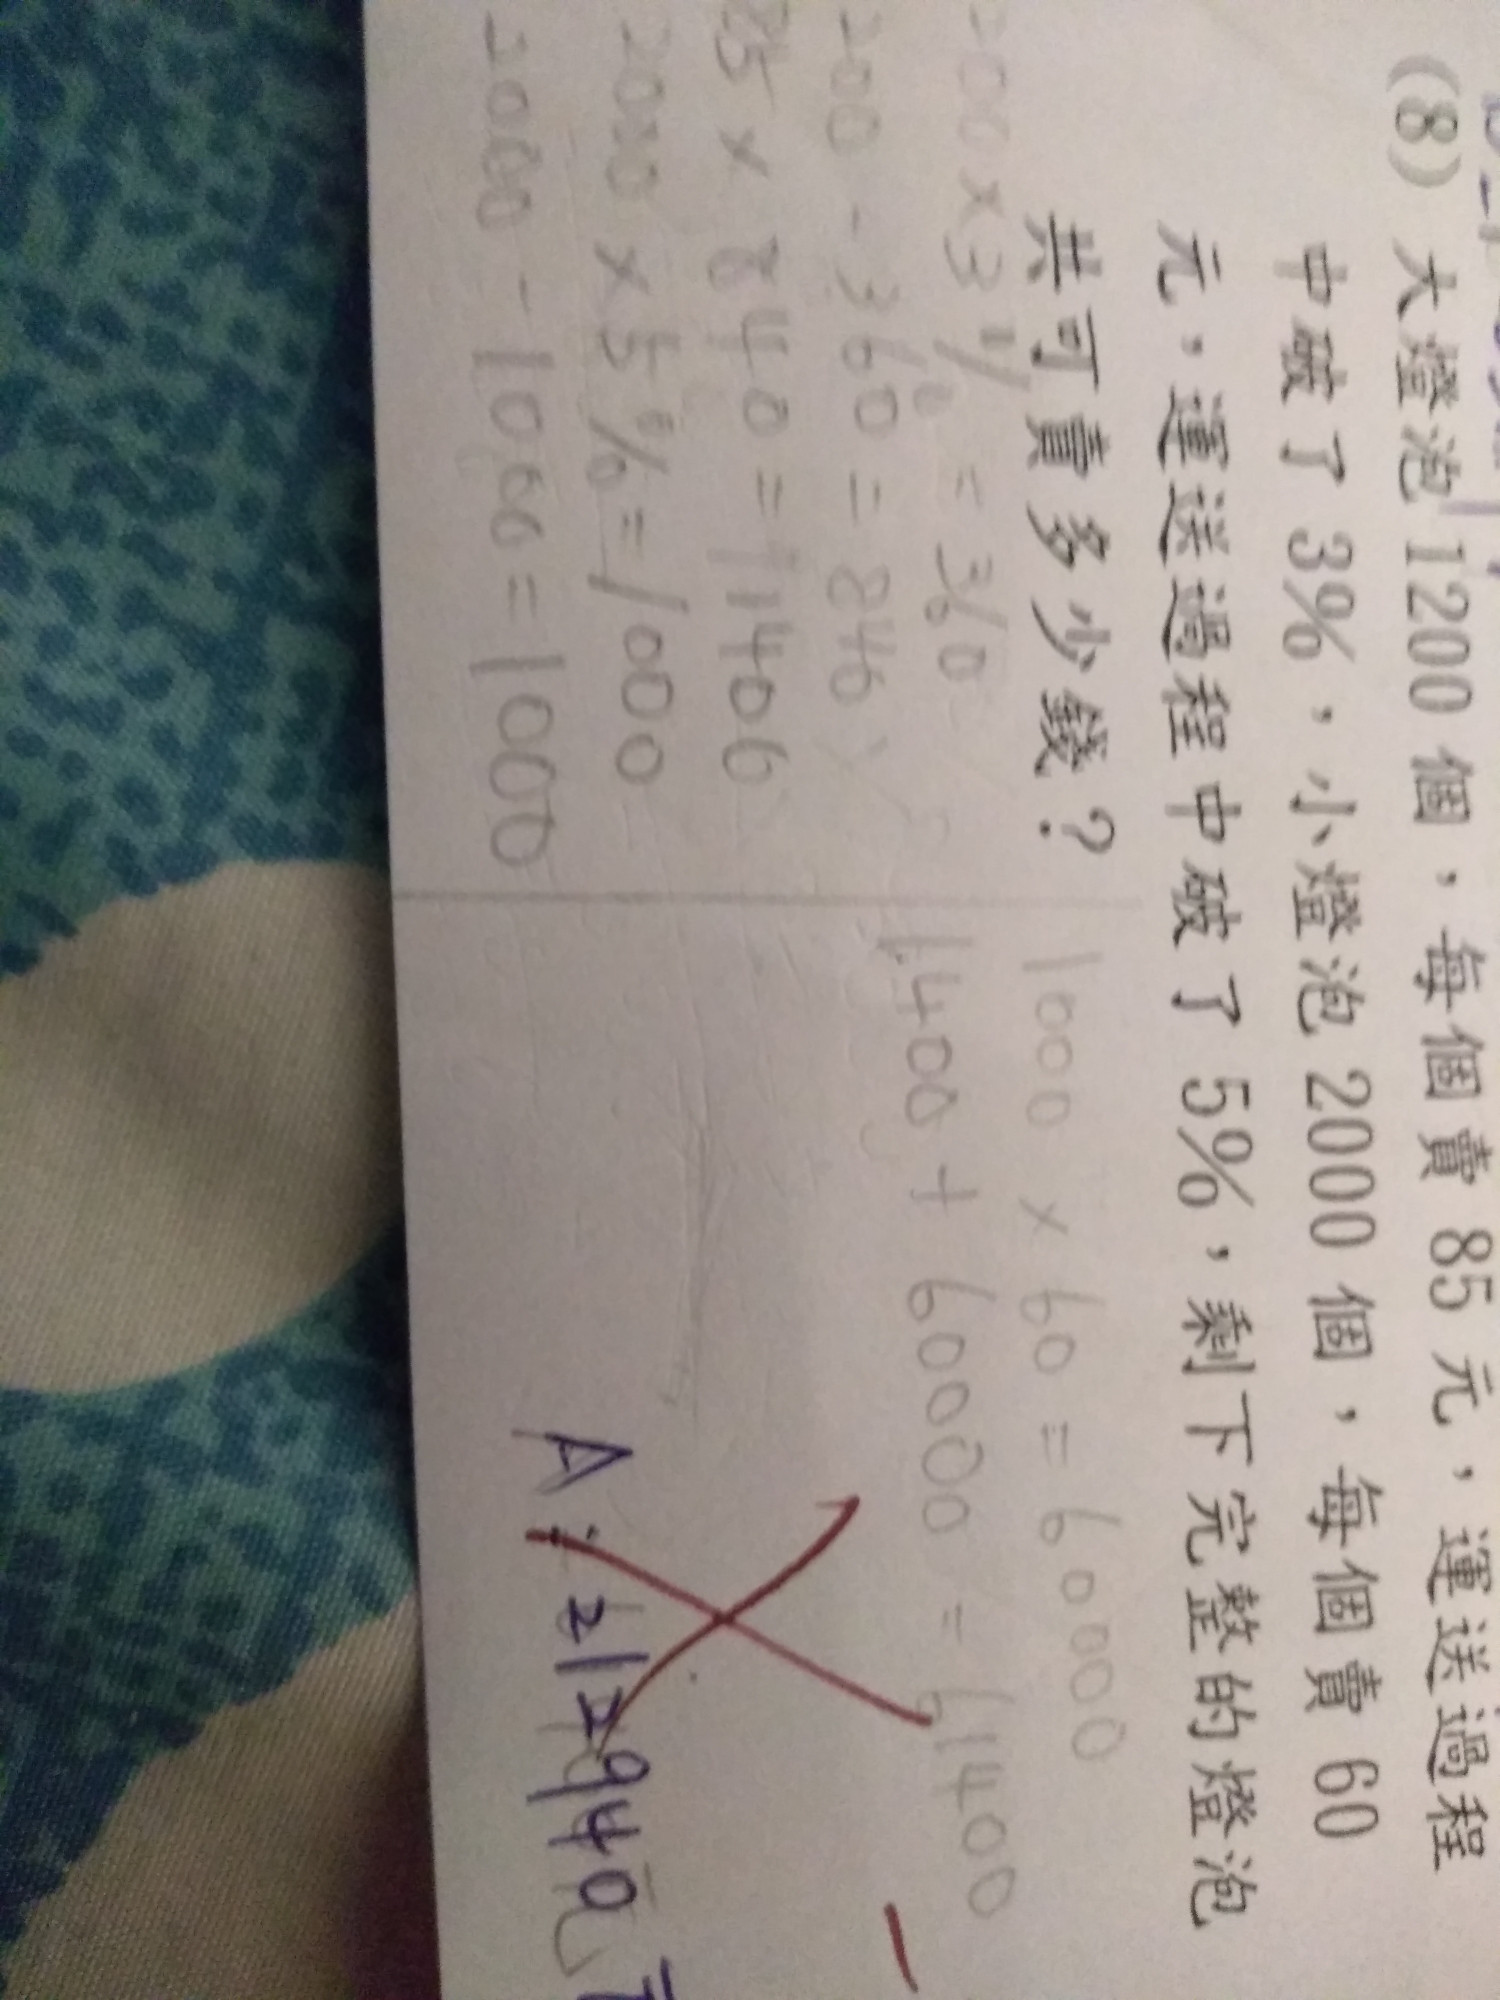 (8) 大燈泡 1200 個，每個賣 85 元，運送過程
中破了 3%，小燈泡 2000 個，每個賣 60
元，運送過程中破了 5%，剩下完整的燈泡
共可賣多少錢？
00 × 3% = 360
200 - 360 = 840
85 × 840 = 71400
2000 × 5% = 1000
2000 - 1000 = 1000
1000 × 60 = 60000
1400 + 60000 = 61400
A: 212940